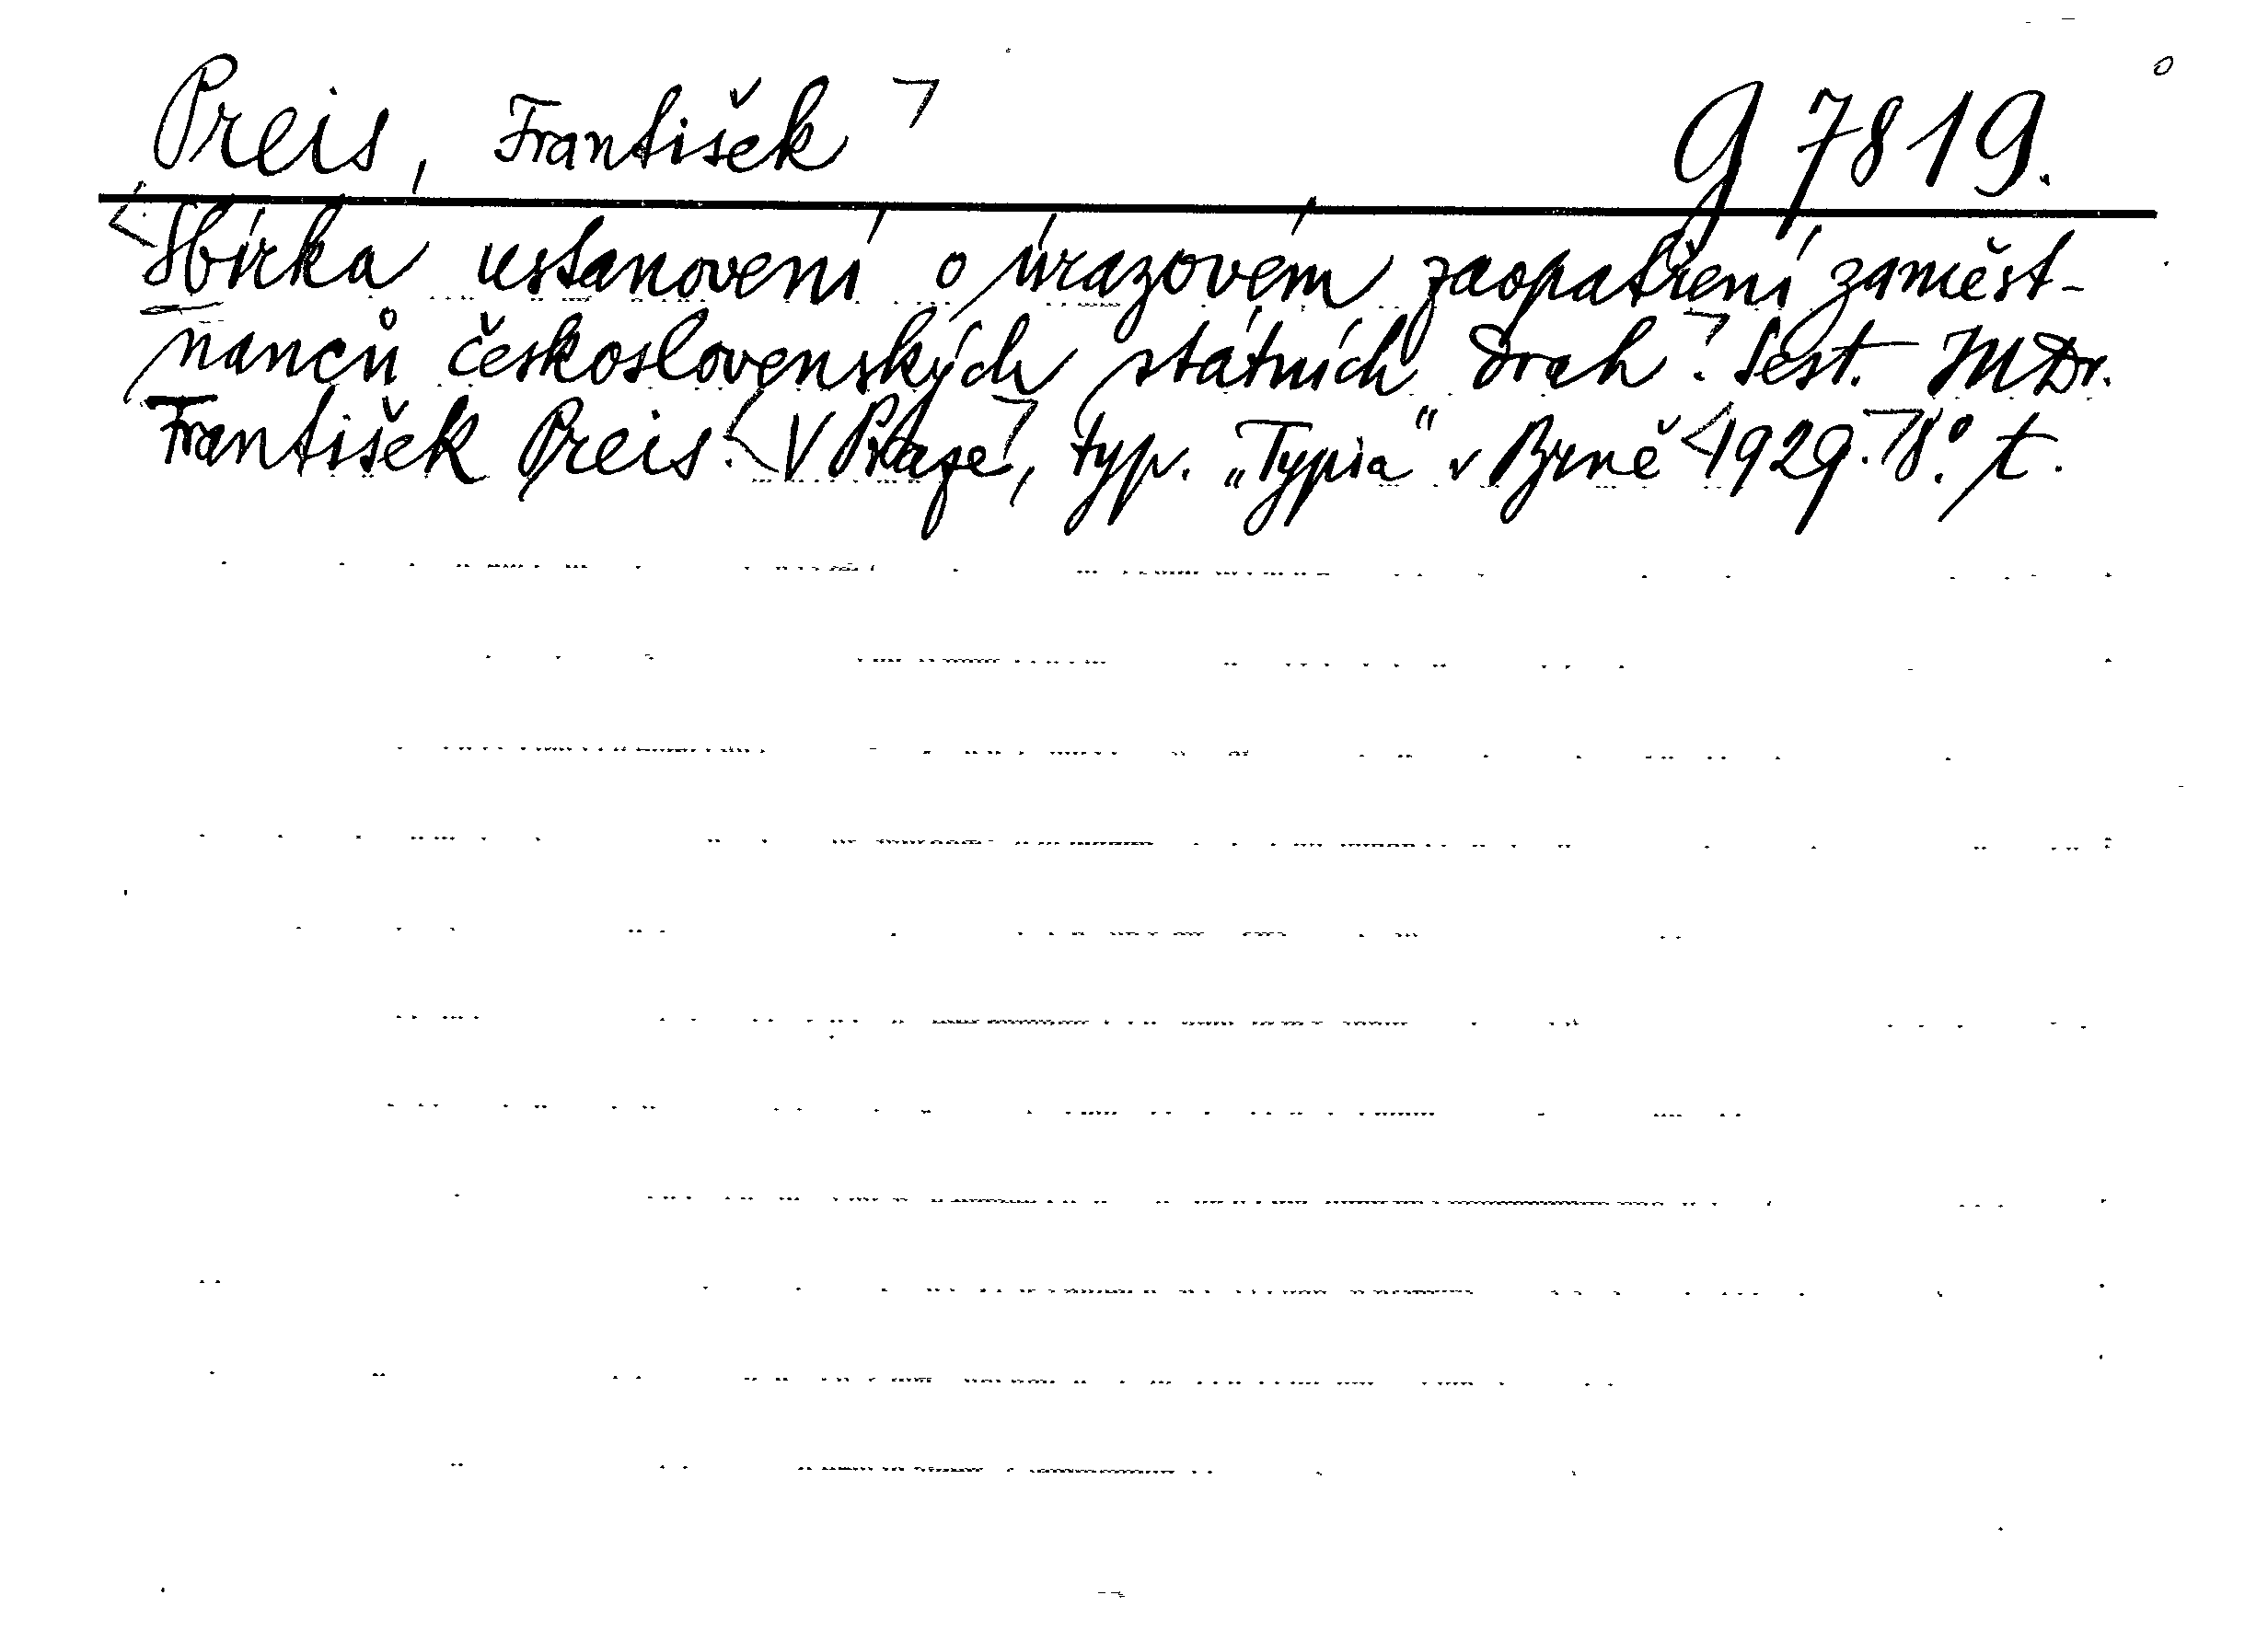 Preis, František g 7819.
Sbírka ustanovení o úrazovém zaopatření zaměst-
nanců československých státních drah. Sest. MDr.
František Preis. V Praze, typ. „Typia“ v Brně 1929. 8°. t.